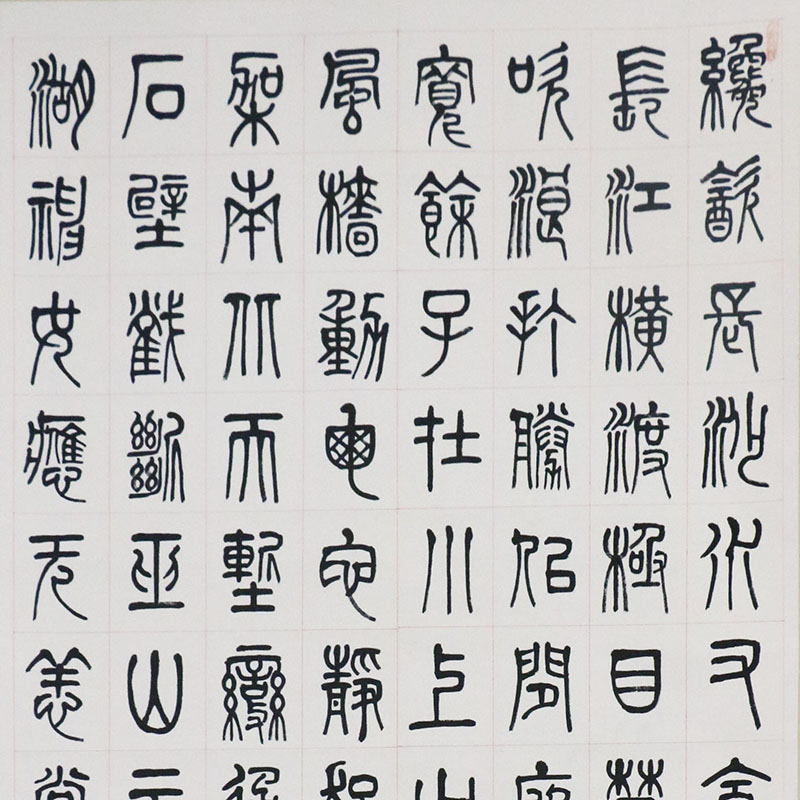 纔飲長沙水又食
長江橫渡極目楚
吹浪打勝似閒庭
寬餘子在川上曰
風檣動龜蛇靜起
架南北天塹變通
石壁截斷巫山雲
湖神女應无恙當